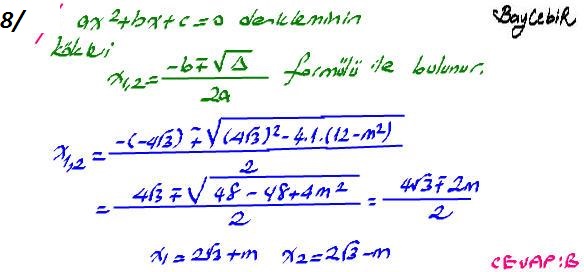 8/ ax²+bx+c=0 denkleminin BayCebiR
kökleri
x₁,₂ = (-b∓√Δ)/2a formülü ile bulunur.
x₁,₂ = (-(-4√3)∓√((4√3)²-4.1.(12-m²)))/2
= (4√3∓√(48-48+4m²))/2 = (4√3∓2m)/2
x₁=2√3+m x₂=2√3-m
CEVAP:B